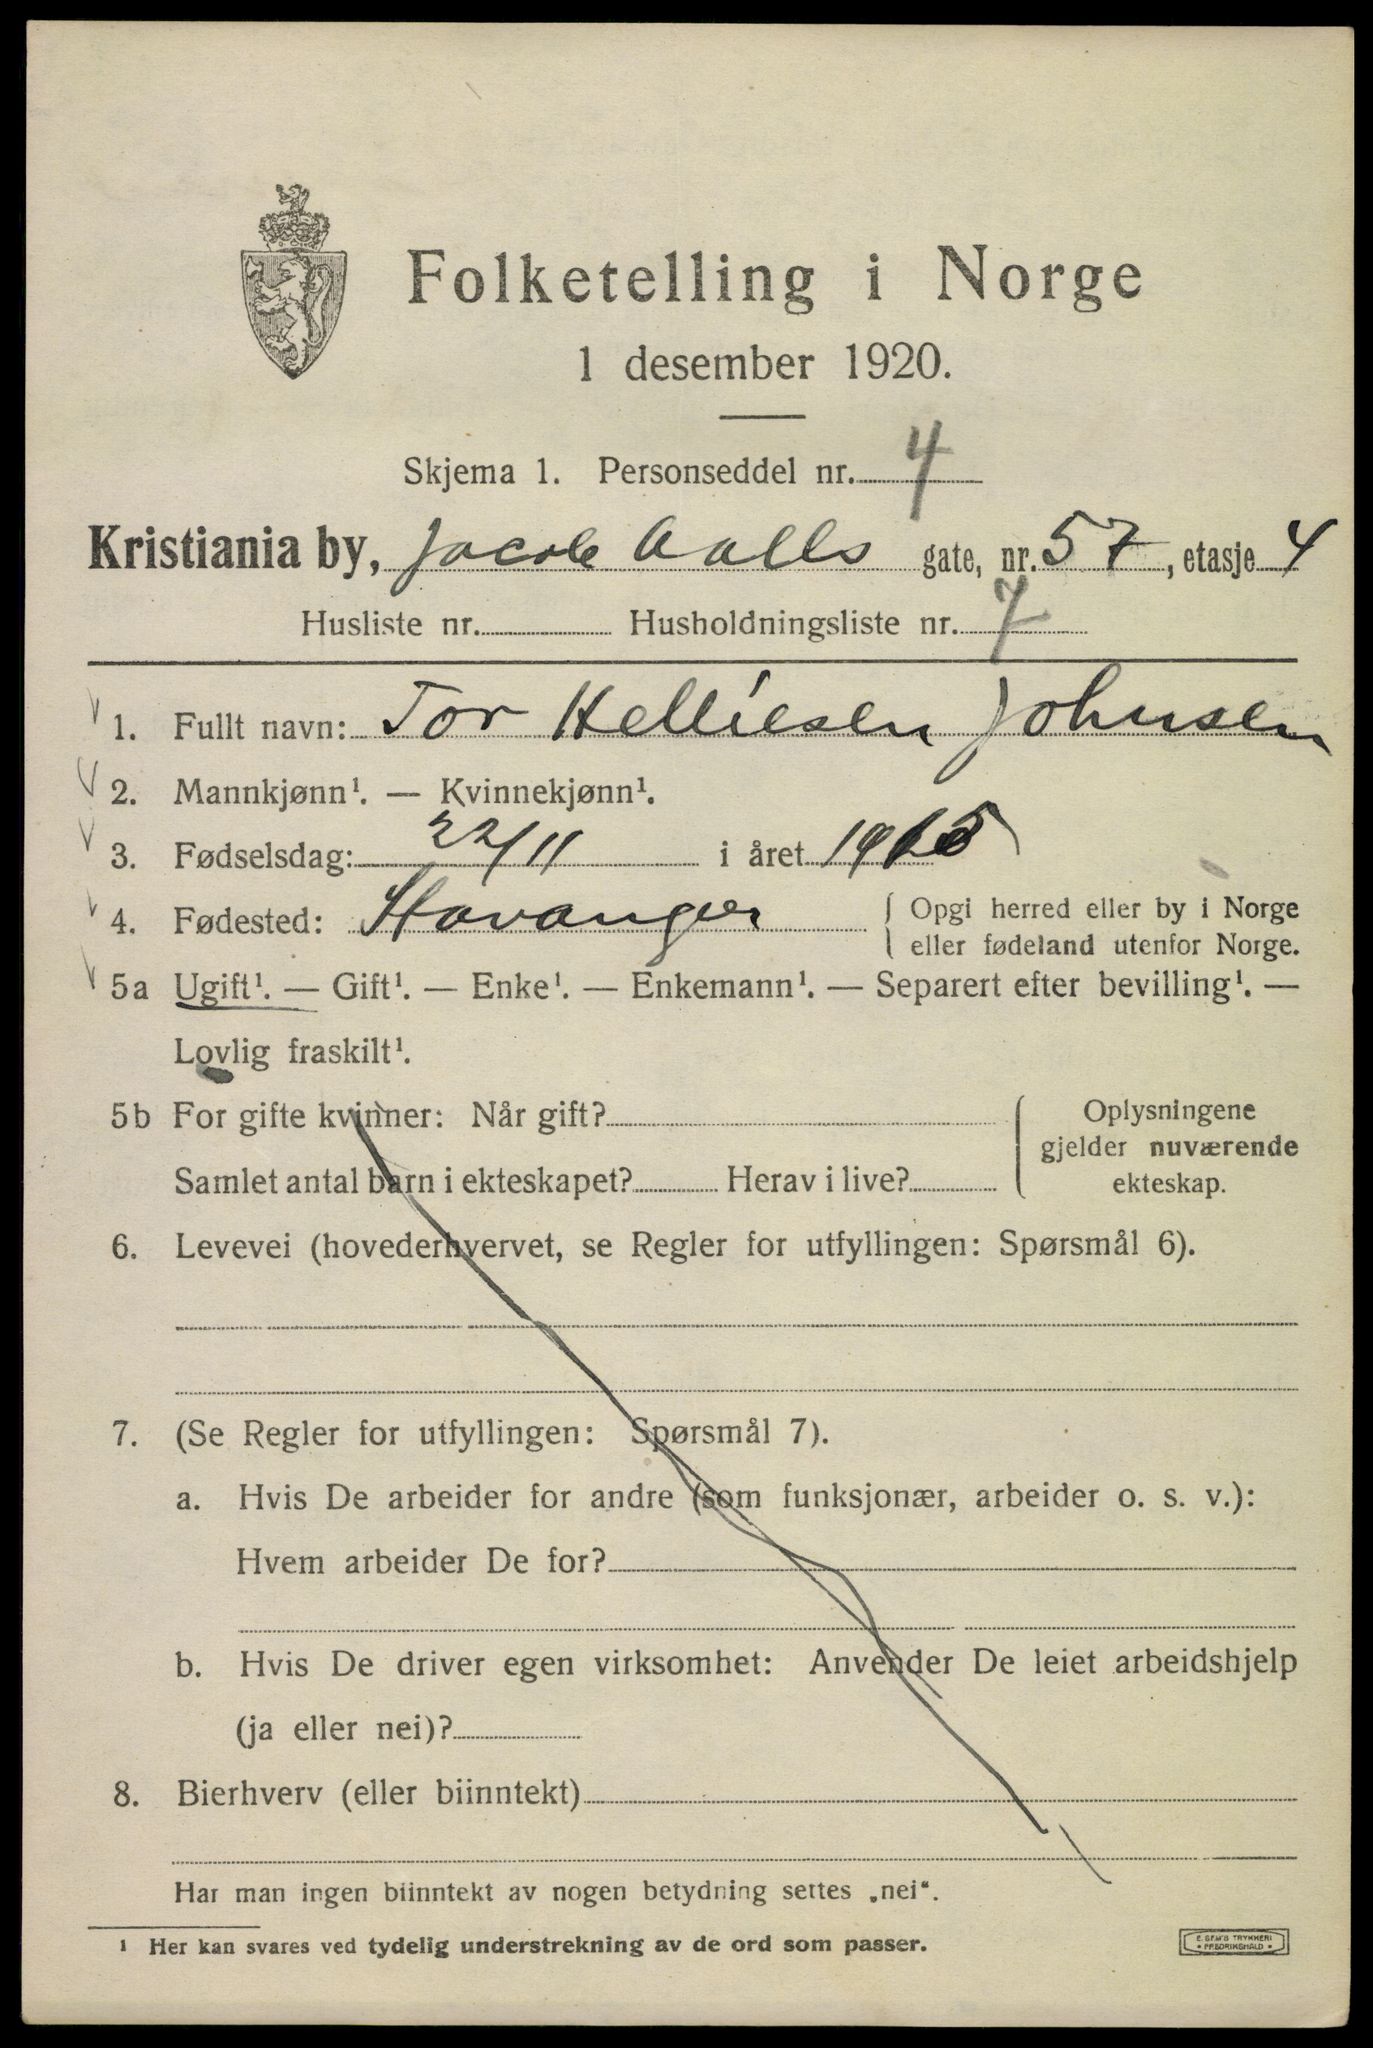 Folketelling i Norge
1 desember 1920.
Skjema 1. Personseddel nr. 4
Kristiania by, Jacob Aalls gate, nr. 57, etasje 4
Husliste nr. Husholdningsliste nr. 7
1. Fullt navn: Tor Helliesen Johnsen
2. Mannkjønn¹. — Kvinnekjønn¹.
3. Fødselsdag: 22/11 i året 1915
4. Fødested: Stavanger { Opgi herred eller by i Norge
eller fødeland utenfor Norge.
5a Ugift¹. — Gift¹. — Enke¹. — Enkemann¹. — Separert efter bevilling¹. —
Lovlig fraskilt¹.
5b For gifte kvinner: Når gift? { Oplysningene
gjelder nuværende
Samlet antal barn i ekteskapet? Herav i live? ekteskap.
6. Levevei (hovederhvervet, se Regler for utfyllingen: Spørsmål 6).
7. (Se Regler for utfyllingen: Spørsmål 7).
a. Hvis De arbeider for andre (som funksjonær, arbeider o. s. v.):
Hvem arbeider De for?
b. Hvis De driver egen virksomhet: Anvender De leiet arbeidshjelp
(ja eller nei)?
8. Bierhverv (eller biinntekt)
Har man ingen biinntekt av nogen betydning settes „nei“.
¹ Her kan svares ved tydelig understrekning av de ord som passer.
E. SEM'S TRYKKERI
FREDRIKSHALD